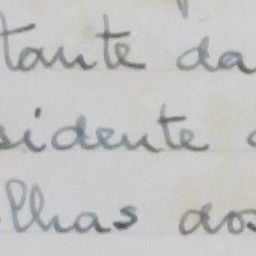 tante da
sidente
lhas dos